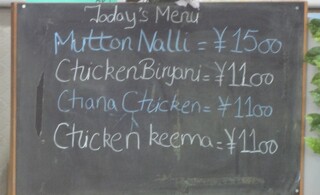 Today's Menu
Mutton Nalli = ¥1500
Chicken Biryani = ¥1100
Chana Chicken = ¥1100
Chicken keema = ¥1100